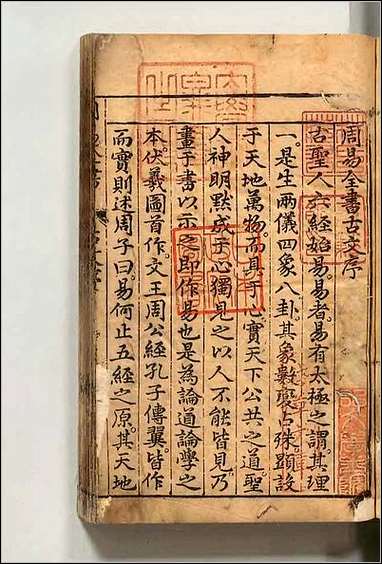 周易全書古文序
古聖人六經始易易者易有太極之謂其理
一是生兩儀四象八卦其象數聚古殊顯設
于天地萬物而具于心實天下公共之道聖
人神明默成于心獨見之以人不能皆見乃
畫于書以示之即作易也是為論道論學之
本伏羲圖首作文王周公經孔子傳翼皆作
而實則述周子曰易何止五經之原其天地